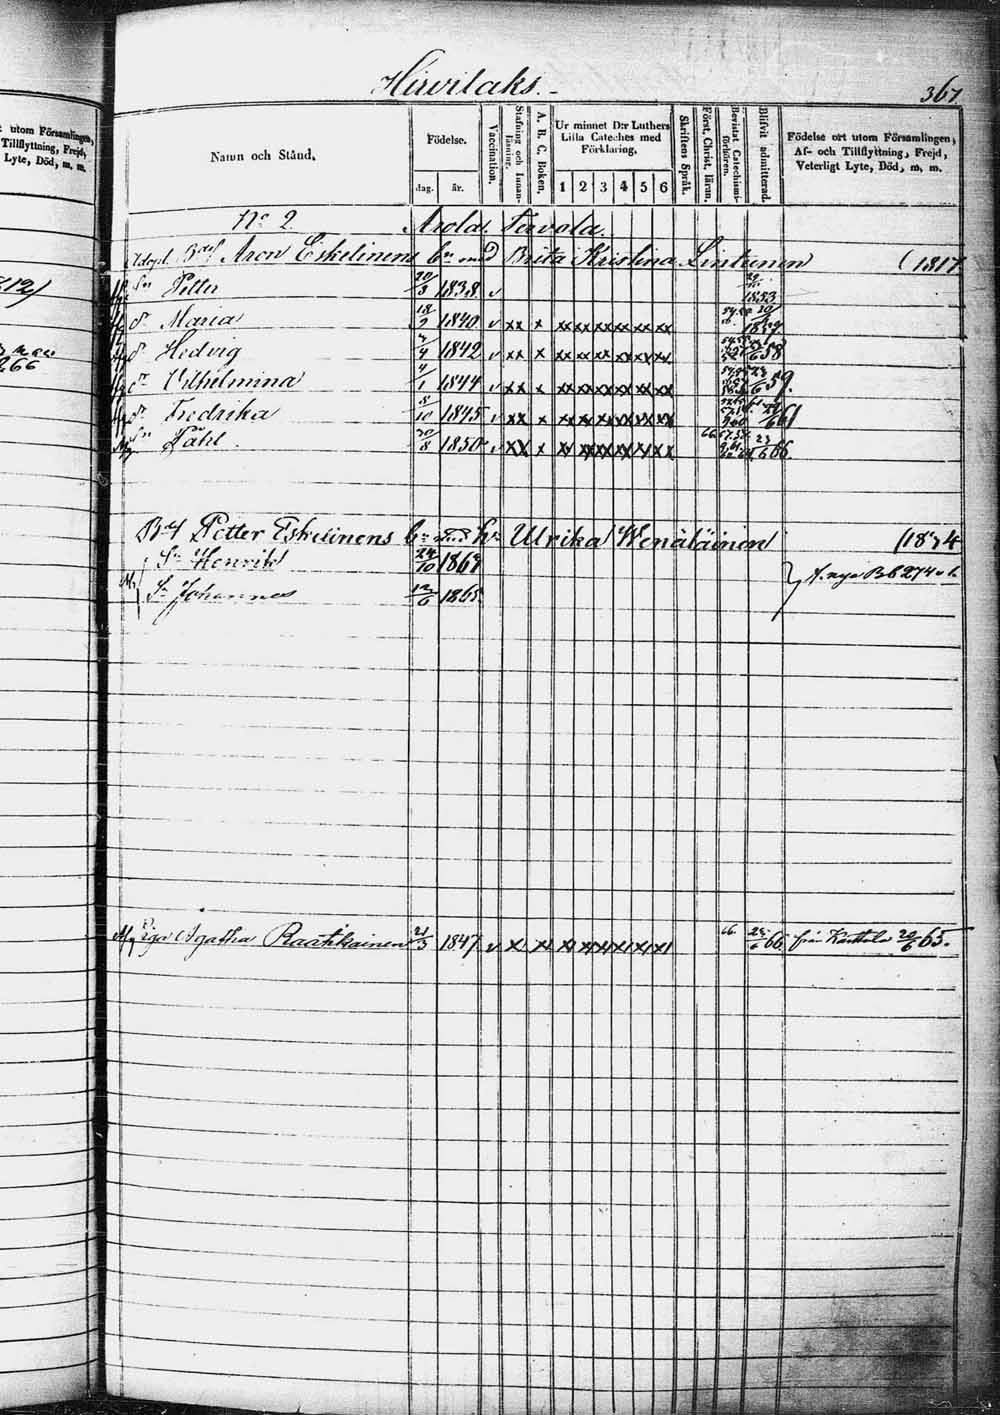 t utom Församlingen,
Tillflyttning, Frejd,
Lyte, Död, m. m.
12)
266
Hirvilaks.
367.
Namn och Stånd.
Födelse.
dag. år.
Vaccination.
Stafning och Innan-läsning.
A. B. C. Boken.
Ur minnet D:r Luthers Lilla Cateches med Förklaring.
1 2 3 4 5 6
Skriftens Språk.
Först. Christ. läran.
Bevistat Catechismi-förhören.
Blifvit admitterad.
Födelse ort utom Församlingen, Af- och Tillflyttning, Frejd, Veterligt Lyte, Död, m. m.
No 2. Arola, Tervola.
Adopt. Bdes Aron Eskelinens bn med Brita Kristina Lintunen (1817
Sn Petter 20/3 1838. v 1853
dr Maria 18/2 1840 v xx x xx xx xx xx xx xx
dr Hedvig 7/4 1842 v xx x xx xx xx xx xx xx 58
dr Vilhelmina 4/1 1844 v xx x xx xx xx xx xx xx 59.
dr Fredrika 8/10 1845 v xx x xx xx xx xx xx xx 61
Sn Påhl. 30/8 1850 v xx x xx xx xx xx xx xx 66. 23/6 66
Petter Eskelinens bn med hu Ulrika Wenäläinen (1834
Sn Henrik 24/10 1863
Sn Johannes 12/6 1865.
A. nya Bb 274
Piga Agatha Raatikainen 21/3 1847 v x x x x x x x x 66. 23/6 66. från Karttula 20/6 65.